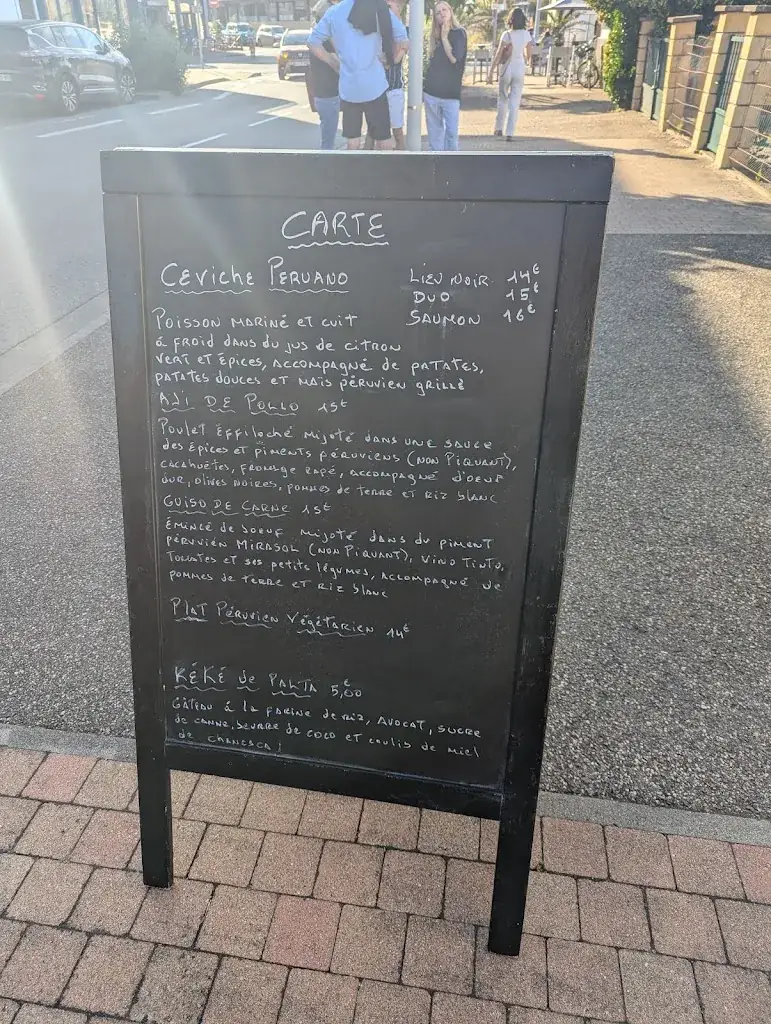 CARTE
CEVICHE PERUANO
LIEU NOIR 14€
DUO 15€
SAUMON 16€
POISSON MARINÉ ET CUIT
à FROID DANS DU JUS DE CITRON
VERT ET ÉPICES, ACCOMPAGNÉ DE PATATES,
PATATES DOUCES ET MAÏS PÉRUVIEN GRILLÉ
AJI DE POLLO 15€
POULET EFFILOCHÉ MIJOTÉ DANS UNE SAUCE
DES ÉPICES ET PIMENTS PÉRUVIENS (NON PIQUANT),
CACAHUÈTES, FROMAGE RAPÉ, ACCOMPAGNÉ D'OEUF
DUR, OLIVES NOIRES, POMMES DE TERRE ET RIZ BLANC
GUISO DE CARNE 15€
ÉMINCÉ DE BOEUF MIJOTÉ DANS DU PIMENT
PÉRUVIEN MIRASOL (NON PIQUANT), VINO TINTO,
TOMATES ET SES PETITS LÉGUMES, ACCOMPAGNÉ DE
POMMES DE TERRE ET RIZ BLANC
PLAT PÉRUVIEN VÉGÉTARIEN 14€
KÉKÉ DE PALTA 5,00€
GÂTEAU à LA FARINE DE RIZ, AVOCAT, SUCRE
DE CANNE, BEURRE DE COCO ET COULIS DE MIEL
DE CHANCACA